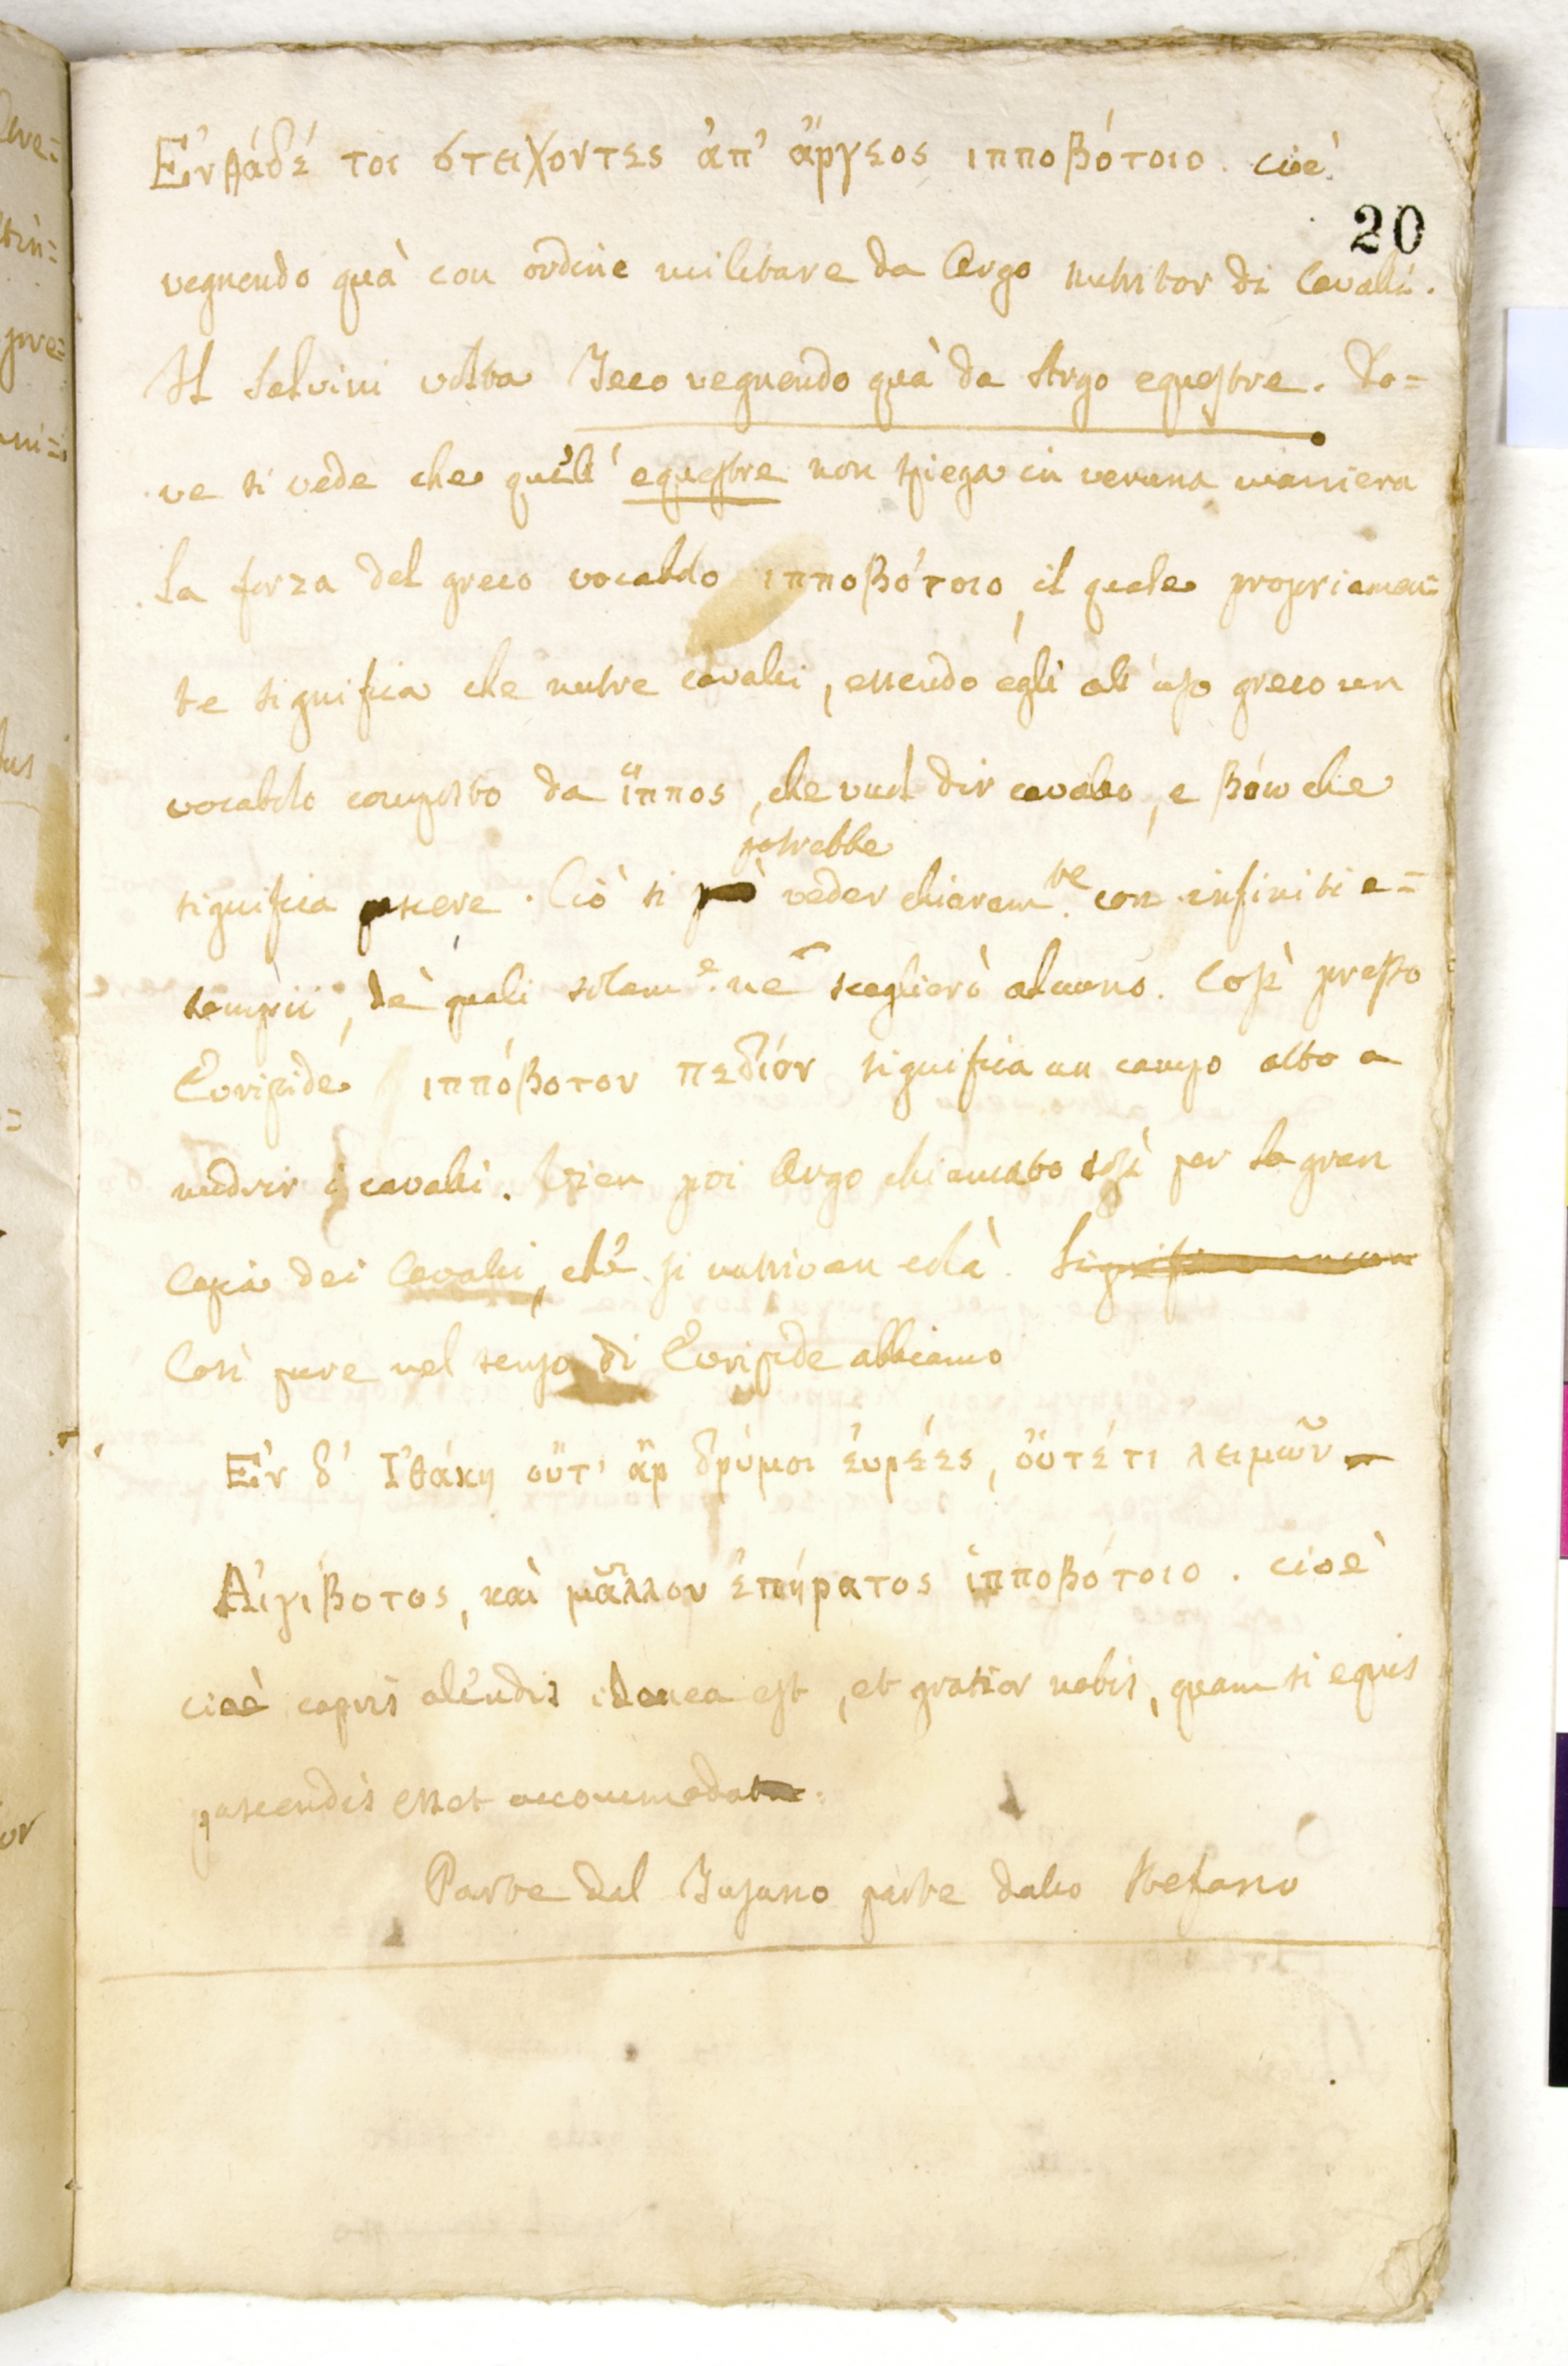 Ἐνθάδέ τοι στειχοντες ἀπ' ἄργεος ιπποβότοιο. cioè
20
vegnendo quà con ordine militare da Argo nutritor di Cavalli.
Il Salvini volta Teco vegnendo quà da Argo equestre. Do=
ve si vede che quell' equestre non spiega in veruna maniera
la forza del greco vocabolo ιπποβότοιο, il quale propriamen=
te significa che nutre cavalli, essendo egli all'uso greco un
vocabolo composto da ἵππος, che vuol dir cavallo, e βόω che
potrebbe
significa pascere. Ciò si può veder chiaram.te con infiniti e=
sempii, de quali solam.e ne sceglierò alcuno. Così presso
Euripide ιππόβοτον πεδιόν significa un campo atto a
nudrir i cavalli. Vien poi Argo chiamato così per la gran
copia dei Cavalli, che si nutrivan colà.
Così pure nel senso di Euripide abbiamo
Ἐν δ' Ἰθάκη οὔτ' ἂρ δρύμοι ἐυρέες, οὔτέ τι λειμῶν
Αἰγίβοτος, καὶ μᾶλλον ἐπήρατος ἱπποβότοιο. cioè
cioè capris alendis idonea est, et gratior nobis, quam si equis
pascendis esset accommodata.
Parte dal Tusano parte dallo Stefano